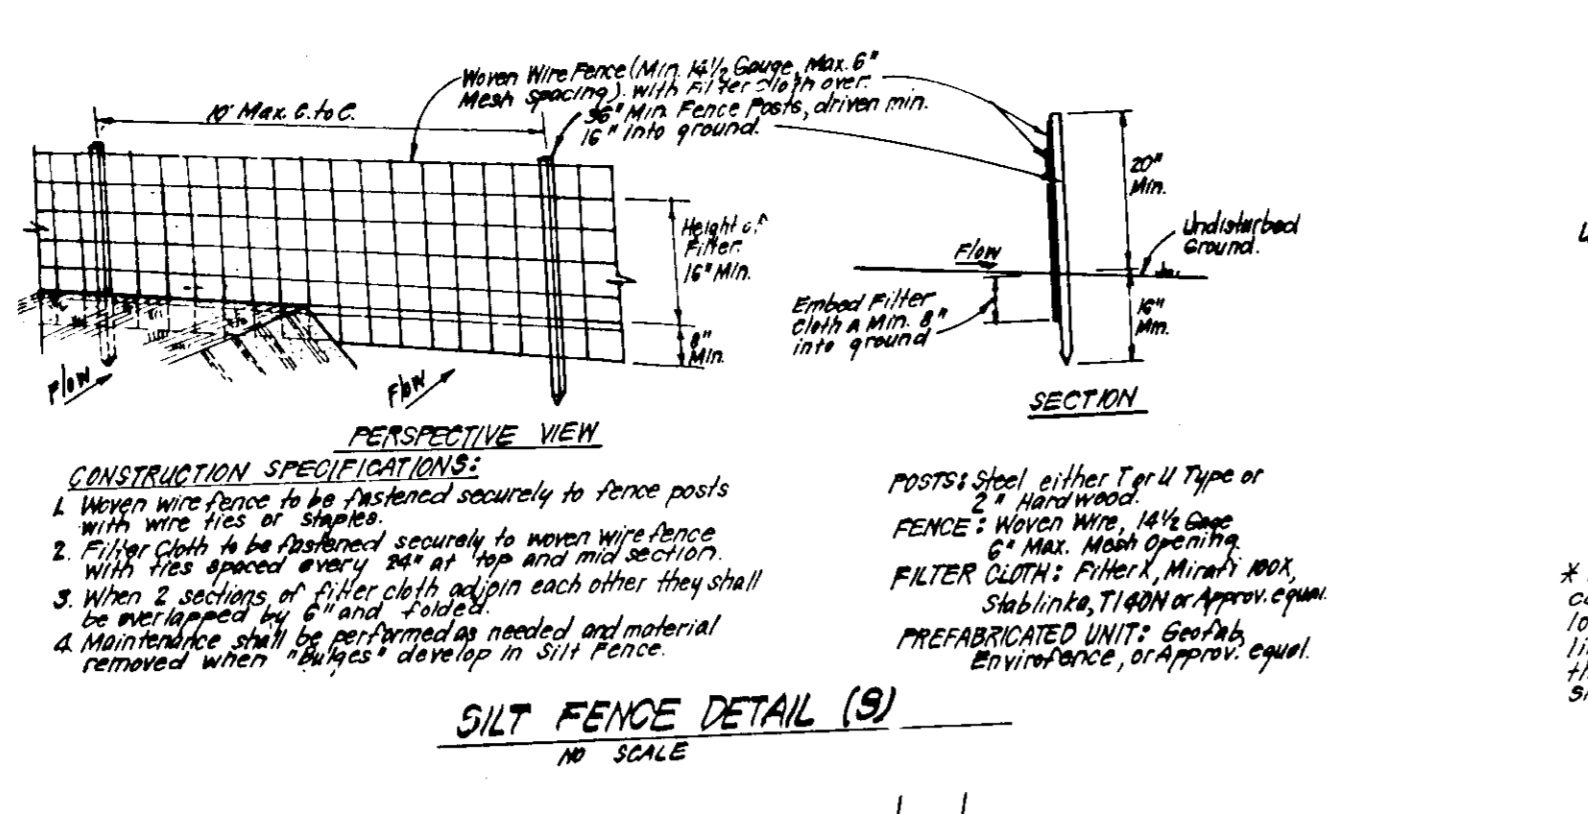 Woven Wire Fence (Min. 14½ Gauge, Max. 6"
Mesh Spacing) with Filter Cloth over.
36" Min. Fence Posts, driven min.
16" into ground.
10' Max. C. to C.
Height of
Filter.
16" Min.
8"
Min.
Flow
Flow
PERSPECTIVE VIEW
20"
Min.
Undisturbed
Ground.
Flow
Embed Filter
cloth a Min. 8"
into ground
16"
Min.
SECTION
CONSTRUCTION SPECIFICATIONS:
1. Woven wire fence to be fastened securely to fence posts
with wire ties or staples.
2. Filter Cloth to be fastened securely to woven wire fence
with ties spaced every 24" at top and mid section.
3. When 2 sections of filter cloth adjoin each other they shall
be overlapped by 6" and folded.
4. Maintenance shall be performed as needed and material
removed when "Bulges" develop in Silt Fence.
POSTS: Steel either T or U Type or
2" Hardwood.
FENCE: Woven Wire, 14½ Gage
6" Max. Mesh Opening.
FILTER CLOTH: Filter X, Mirafi 100X,
Stablinka, T140N or Approv. equal.
PREFABRICATED UNIT: Geofab,
Envirofence, or Approv. equal.
SILT FENCE DETAIL (S)
NO SCALE